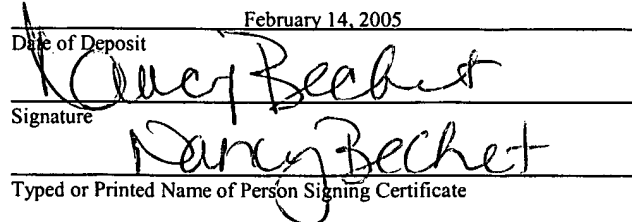 February 14, 2005
Date of Deposit
Nancy Bechet
Signature
Nancy Bechet
Typed or Printed Name of Person Signing Certificate